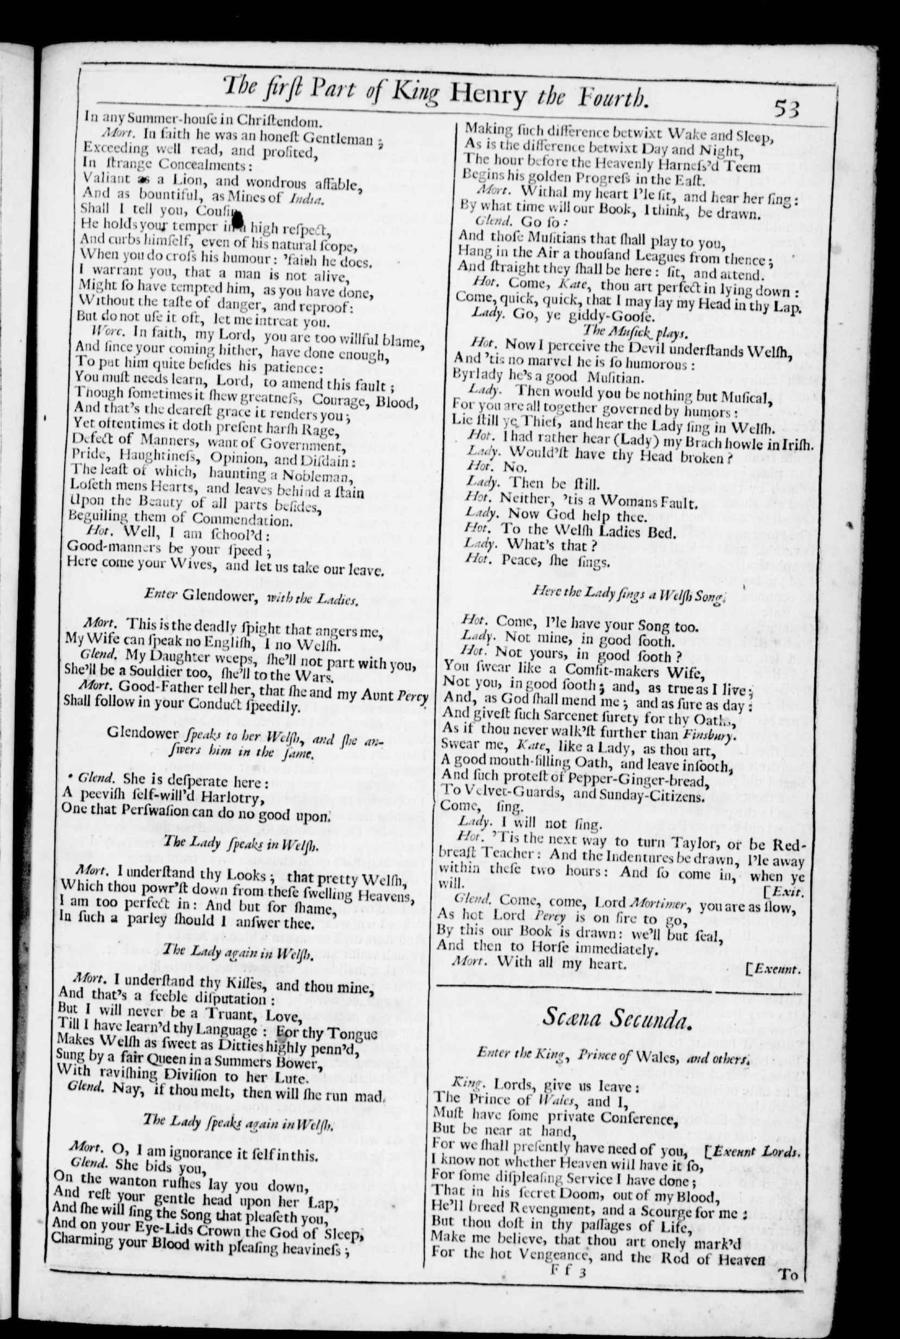 The firſt Part of King Henry the Fourth.
53
In any Summer-houſe in Chriſtendom.
Mort. In faith he was an honeſt Gentleman ;
Exceeding well read, and profited,
In ſtrange Concealments:
Valiant as a Lion, and wondrous affable,
And as bountiful, as Mines of India.
Shall I tell you, Couſin,
He holds your temper in a high reſpect,
And curbs himſelf, even of his natural ſcope,
When you do croſs his humour: 'faith he does.
I warrant you, that a man is not alive,
Might ſo have tempted him, as you have done,
Without the taſte of danger, and reproof:
But do not uſe it oft, let me intreat you.
Worc. In faith, my Lord, you are too willful blame,
And ſince your coming hither, have done enough,
To put him quite beſides his patience:
You muſt needs learn, Lord, to amend this fault ;
Though ſometimes it ſhew greatneſs, Courage, Blood,
And that's the deareſt grace it renders you ;
Yet oftentimes it doth preſent harſh Rage,
Defect of Manners, want of Government,
Pride, Haughtineſs, Opinion, and Diſdain:
The leaſt of which, haunting a Nobleman,
Loſeth mens Hearts, and leaves behind a ſtain
Upon the Beauty of all parts beſides,
Beguiling them of Commendation.
Hot. Well, I am ſchool'd:
Good-manners be your ſpeed ;
Here come your Wives, and let us take our leave.
Enter Glendower, with the Ladies.
Mort. This is the deadly ſpight that angers me,
My Wife can ſpeak no Engliſh, I no Welſh.
Glend. My Daughter weeps, ſhe'll not part with you,
She'll be a Souldier too, ſhe'll to the Wars.
Mort. Good-Father tell her, that ſhe and my Aunt Percy
Shall follow in your Conduct ſpeedily.
Glendower ſpeaks to her Welſh, and ſhe an-
ſwers him in the ſame.
Glend. She is deſperate here:
A peeviſh ſelf-will'd Harlotry,
One that Perſwaſion can do no good upon.
The Lady ſpeaks in Welſh.
Mort. I underſtand thy Looks ; that pretty Welſh,
Which thou powr'ſt down from theſe ſwelling Heavens,
I am too perfect in: And but for ſhame,
In ſuch a parley ſhould I anſwer thee.
The Lady again in Welſh.
Mort. I underſtand thy Kiſſes, and thou mine,
And that's a feeble diſputation :
But I will never be a Truant, Love,
Till I have learn'd thy Language : For thy Tongue
Makes Welſh as ſweet as Ditties highly penn'd,
Sung by a fair Queen in a Summers Bower,
With raviſhing Diviſion to her Lute.
Glend. Nay, if thou melt, then will ſhe run mad.
The Lady ſpeaks again in Welſh.
Mort. O, I am ignorance it ſelf in this.
Glend. She bids you,
On the wanton ruſhes lay you down,
And reſt your gentle head upon her Lap,
And ſhe will ſing the Song that pleaſeth you,
And on your Eye-Lids Crown the God of Sleep,
Charming your Blood with pleaſing heavineſs ;
Making ſuch difference betwixt Wake and Sleep,
As is the difference betwixt Day and Night,
The hour before the Heavenly Harneſs'd Teem
Begins his golden Progreſs in the Eaſt.
Mort. Withal my heart I'le ſit, and hear her ſing:
By what time will our Book, I think, be drawn.
Glend. Go ſo:
And thoſe Muſitians that ſhall play to you,
Hang in the Air a thouſand Leagues from thence;
And ſtraight they ſhall be here: ſit, and attend.
Hot. Come, Kate, thou art perfect in lying down :
Come, quick, quick, that I may lay my Head in thy Lap.
Lady. Go, ye giddy-Gooſe.
The Muſick plays.
Hot. Now I perceive the Devil underſtands Welſh,
And 'tis no marvel he is ſo humorous:
Byrlady he's a good Muſitian.
Lady. Then would you be nothing but Muſical,
For you are all together governed by humors:
Lie ſtill ye Thief, and hear the Lady ſing in Welſh.
Hot. I had rather hear (Lady) my Brach howle in Iriſh.
Lady. Would'ſt have thy Head broken ?
Hot. No.
Lady. Then be ſtill.
Hot. Neither, 'tis a Womans Fault.
Lady. Now God help thee.
Hot. To the Welſh Ladies Bed.
Lady. What's that ?
Hot. Peace, ſhe ſings.
Here the Lady ſings a Welſh Song.
Hot. Come, I'le have your Song too.
Lady. Not mine, in good ſooth.
Hot. Not yours, in good ſooth ?
You ſwear like a Comfit-makers Wife,
Not you, in good ſooth ; and, as true as I live ;
And, as God ſhall mend me ; and as ſure as day :
And giveſt ſuch Sarcenet ſurety for thy Oaths,
As if thou never walk'ſt further than Finsbury.
Swear me, Kate, like a Lady, as thou art,
A good mouth-filling Oath, and leave inſooth,
And ſuch proteſt of Pepper-Ginger-bread,
To Velvet-Guards, and Sunday-Citizens.
Come, ſing.
Lady. I will not ſing.
Hot. 'Tis the next way to turn Taylor, or be Red-
breaſt Teacher: And the Indentures be drawn, I'le away
within theſe two hours: And ſo come in, when ye
will. [Exit.
Glend. Come, come, Lord Mortimer, you are as ſlow,
As hot Lord Percy is on fire to go,
By this our Book is drawn: we'll but ſeal,
And then to Horſe immediately.
Mort. With all my heart. [Exeunt.
Scæna Secunda.
Enter the King, Prince of Wales, and others.
King. Lords, give us leave:
The Prince of Wales, and I,
Muſt have ſome private Conference,
But be near at hand,
For we ſhall preſently have need of you, [Exeunt Lords.
I know not whether Heaven will have it ſo,
For ſome diſpleaſing Service I have done;
That in his ſecret Doom, out of my Blood,
He'll breed Revengment, and a Scourge for me :
But thou doſt in thy paſſages of Life,
Make me believe, that thou art onely mark'd
For the hot Vengeance, and the Rod of Heaven
F f 3
To